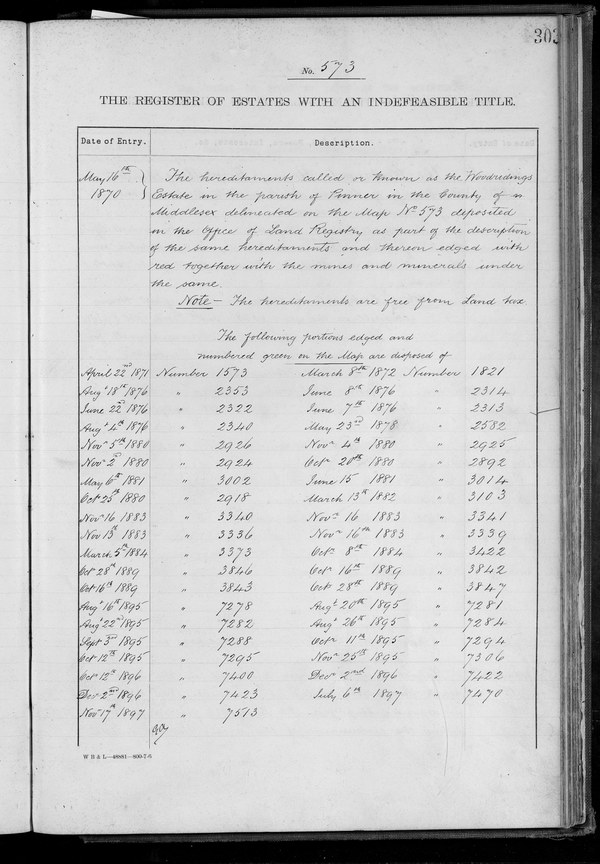 303
No. 573
THE REGISTER OF ESTATES WITH AN INDEFEASIBLE TITLE.
Date of Entry. Description.
May 16th 1870 The hereditaments called or known as the Woodridings
Estate in the parish of Pinner in the County of
Middlesex delineated on the Map No 573 deposited
in the Office of Land Registry as part of the description
of the same hereditaments and thereon edged with
red together with the mines and minerals under
the same.
Note – The hereditaments are free from Land tax.
The following portions edged and
numbered green on the Map are disposed of
April 22nd 1871 Number 1573 March 8th 1872 Number 1821
Augt 18th 1876 " 2353 June 8th 1876 " 2314
June 22nd 1876 " 2322 June 7th 1876 " 2313
Augt 4th 1876 " 2340 May 23rd 1878 " 2582
Novr 5th 1880 " 2926 Novr 4th 1880 " 2925
Novr 2nd 1880 " 2924 Octr 20th 1880 " 2892
May 6th 1881 " 3002 June 15 1881 " 3014
Oct 25th 1880 " 2918 March 13th 1882 " 3103
Novr 16 1883 " 3340 Novr 16 1883 " 3341
Nov 13th 1883 " 3336 Novr 16th 1883 " 3339
March 5th 1884 " 3373 Octr 8th 1884 " 3422
Oct 28th 1889 " 3846 Octr 16th 1889 " 3842
Oct 16th 1889 " 3843 Octr 28th 1889 " 3847
Augt 16th 1895 " 7278 Augt 20th 1895 " 7281
Augt 22nd 1895 " 7282 Augt 26th 1895 " 7284
Sept 3rd 1895 " 7288 Octr 11th 1895 " 7294
Oct 12th 1895 " 7295 Novr 25th 1895 " 7306
Octr 12th 1896 " 7400 Decr 2nd 1896 " 7422
Decr 2nd 1896 " 7423 July 6th 1897 " 7470
Novr 17th 1897 " 7513